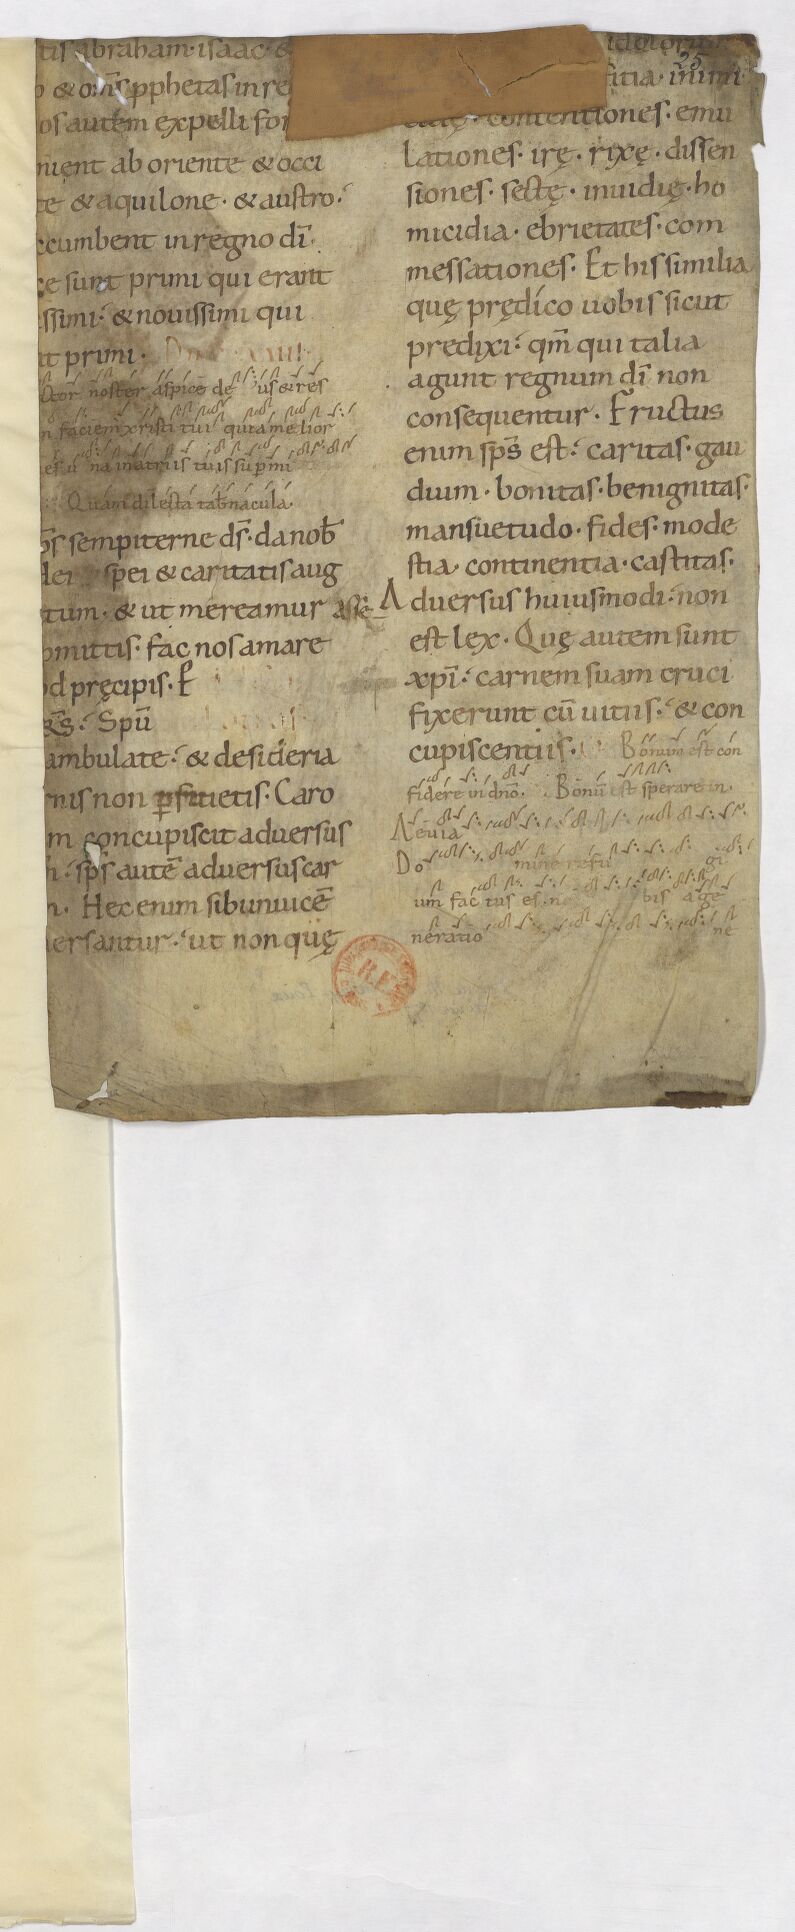 tis abraham· isaac· &
& om̄s ꝓphetas in re
os autem expelli for
nient ab oriente & occi
te & aquilone· & austro·
ccumbent in regno dī·
ce sunt primi qui erant
ssimi· & nouissimi qui
nt primi·
ctor noster aspice de us & res
n faciem xpisti tui quia melior
es u na in atriis tuis sup mi
Quam dilecta tab̄nacula·
ps sempiterne ds̄· da nob̄
dei spei & caritatis aug
tum· & ut mereamur asse
omittis· fac nos amare
od pręcipis· P
Spū
ambulate· & desideria
rnis non ꝑficietis· Caro
m concupiscit aduersus
sp̄s autē aduersus car
n· Hec enim sibi inuicē
uersantur· ut non quę
idolorū
25
inimi
contentiones· emu
lationes· irę· rixę· dissen
siones· sectę· inuidię· ho
micidia· ebrietates· com
messationes· Et his similia
quę prędico uobis sicut
predixi· qm̄ qui talia
agunt regnum dī non
consequentur· Fructus
enim sp̄s est· caritas· gau
dium· bonitas· benignitas·
mansuetudo· fides· mode
stia· continentia· castitas·
Aduersus huiusmodi· non
est lex· Quę autem sunt
xpī· carnem suam cruci
fixerunt cū uitiis· & con
cupiscentiis· Bonum est con
fidere in dn̄o· Bonū est sperare in·
Aeuia
Do mine refu gi
um fac tus es no bis a ge
neratio ne
R.F.